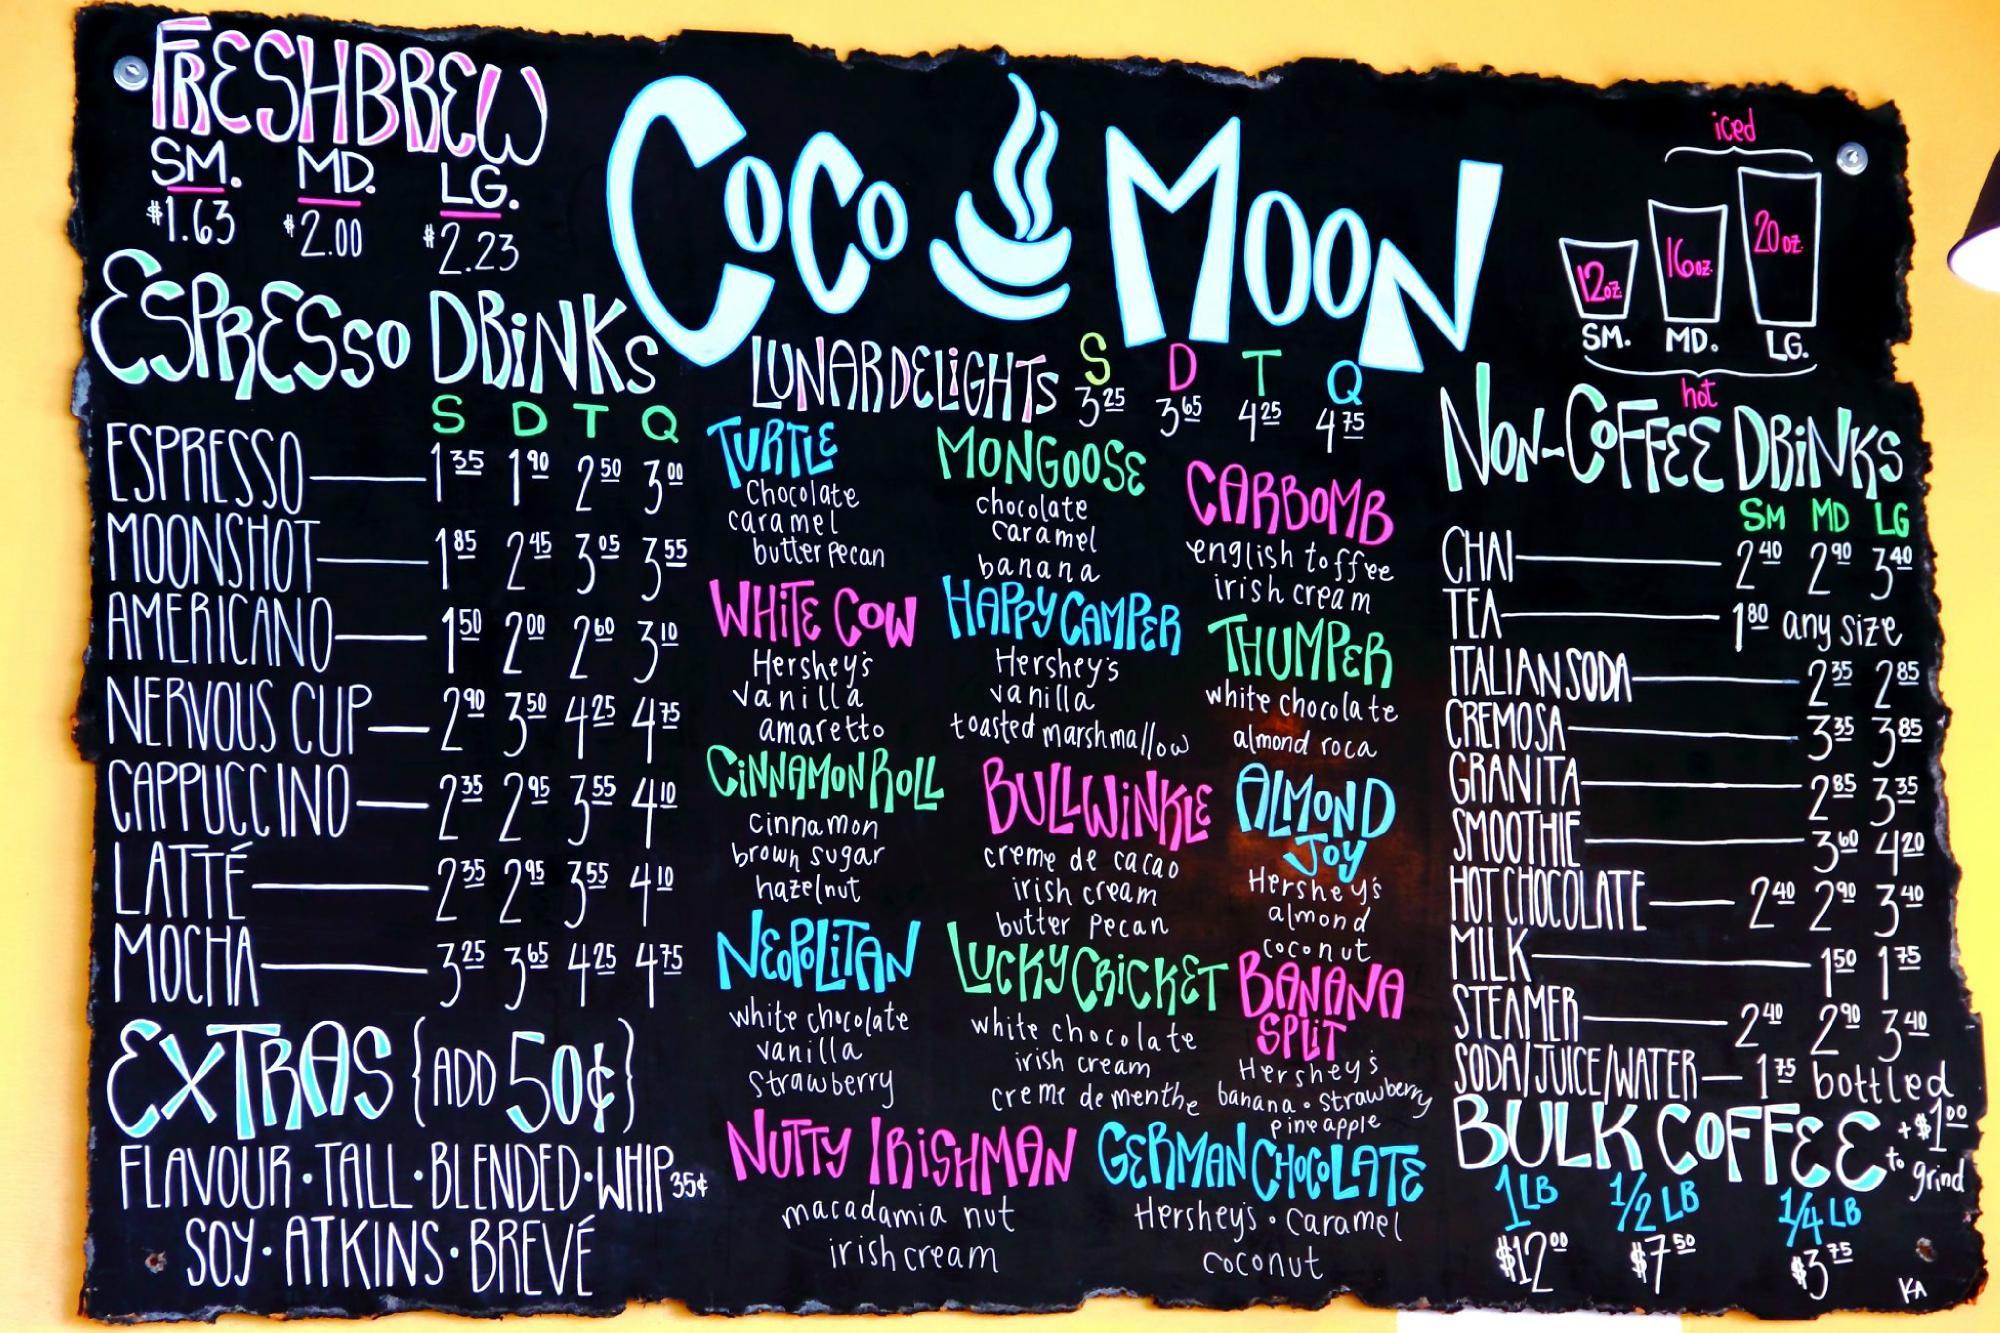 FRESHBREW
SM. MD. LG.
$1.63 $2.00 $2.23
COCO MOON
iced
12oz. 16oz. 20oz.
SM. MD. LG.
hot
ESPRESSO DRINKS
S D T Q
ESPRESSO 1.35 1.90 2.50 3.00
MOONSHOT 1.85 2.45 3.05 3.55
AMERICANO 1.50 2.00 2.60 3.10
NERVOUS CUP 2.90 3.50 4.25 4.75
CAPPUCCINO 2.35 2.95 3.55 4.10
LATTÉ 2.35 2.95 3.55 4.10
MOCHA 3.25 3.65 4.25 4.75
EXTRAS {ADD 50¢}
FLAVOUR · TALL · BLENDED · WHIP 35¢
SOY · ATKINS · BREVÉ
LUNAR DELIGHTS S D T Q
3.25 3.65 4.25 4.75
TURTLE
Chocolate
caramel
butter pecan
WHITE COW
Hershey's
vanilla
amaretto
CINNAMON ROLL
cinnamon
brown sugar
hazelnut
NEOPOLITAN
white chocolate
vanilla
strawberry
NUTTY IRISHMAN
macadamia nut
irish cream
MONGOOSE
chocolate
caramel
banana
HAPPY CAMPER
Hershey's
vanilla
toasted marshmallow
BULLWINKLE
creme de cacao
irish cream
butter pecan
LUCKY CRICKET
white chocolate
irish cream
creme de menthe
CARBOMB
english toffee
irish cream
THUMPER
white chocolate
almond roca
ALMOND
JOY
Hershey's
almond
coconut
BANANA
SPLIT
Hershey's
banana · strawberry
pineapple
GERMAN CHOCOLATE
Hershey's · caramel
coconut
NON-COFFEE DRINKS
SM MD LG
CHAI 2.40 2.90 3.40
TEA 1.80 any size
ITALIAN SODA 2.35 2.85
CREMOSA 3.35 3.85
GRANITA 2.85 3.35
SMOOTHIE 3.60 4.20
HOT CHOCOLATE 2.40 2.90 3.40
MILK 1.50 1.75
STEAMER 2.40 2.90 3.40
SODA/JUICE/WATER 1.75 bottled
BULK COFFEE +$1.00 to grind
1 LB 1/2 LB 1/4 LB
$12.00 $7.50 $3.75
KA